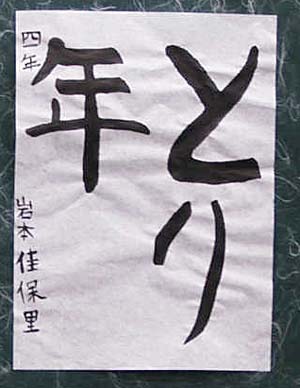 とり
年
四年
岩本佳保里